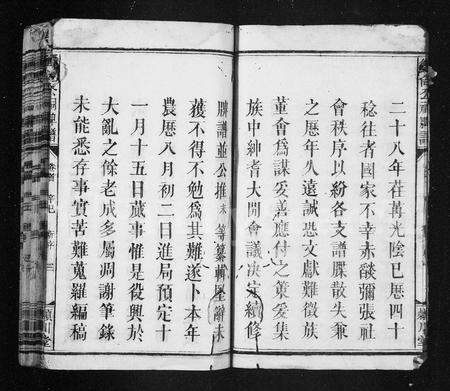 二十八年荏苒光陰已歷四十
稔往者國家不幸赤燄彌張社
會秩序以紛各支譜牒散失兼
之歷年久遠誠恐文獻難徵族
董會為謀妥善應付之策爰集
族中紳耆大開會議決定續修
牒譜並公推 等纂輯屢辭未
獲不得不勉為其難遂卜本年
農歷八月初二日進局預定十
一月十五日蕆事惟是役興於
大亂之餘老成多屬凋謝筆錄
未能悉存事實苦難蒐羅編稿
潁川堂